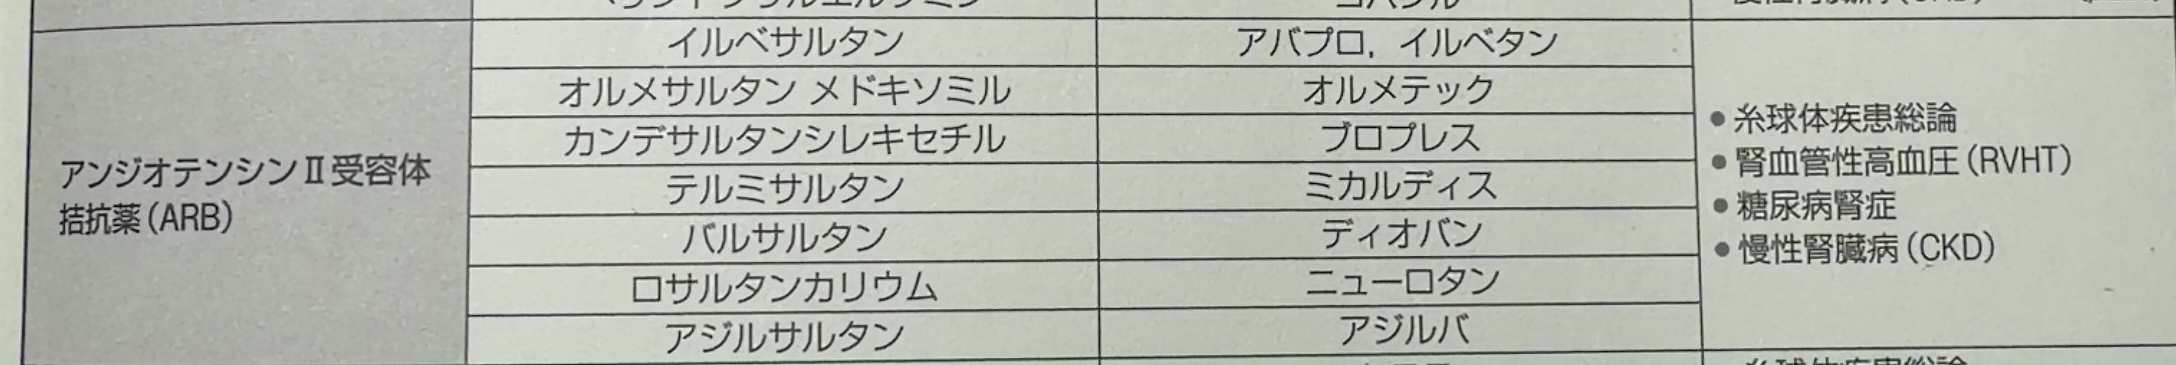 イルベサルタン
アバプロ，イルベタン
オルメサルタン メドキソミル
オルメテック
カンデサルタンシレキセチル
ブロプレス
アンジオテンシンⅡ受容体
拮抗薬(ARB)
テルミサルタン
ミカルディス
バルサルタン
ディオバン
ロサルタンカリウム
ニューロタン
アジルサルタン
アジルバ
●糸球体疾患総論
●腎血管性高血圧(RVHT)
●糖尿病腎症
●慢性腎臓病(CKD)